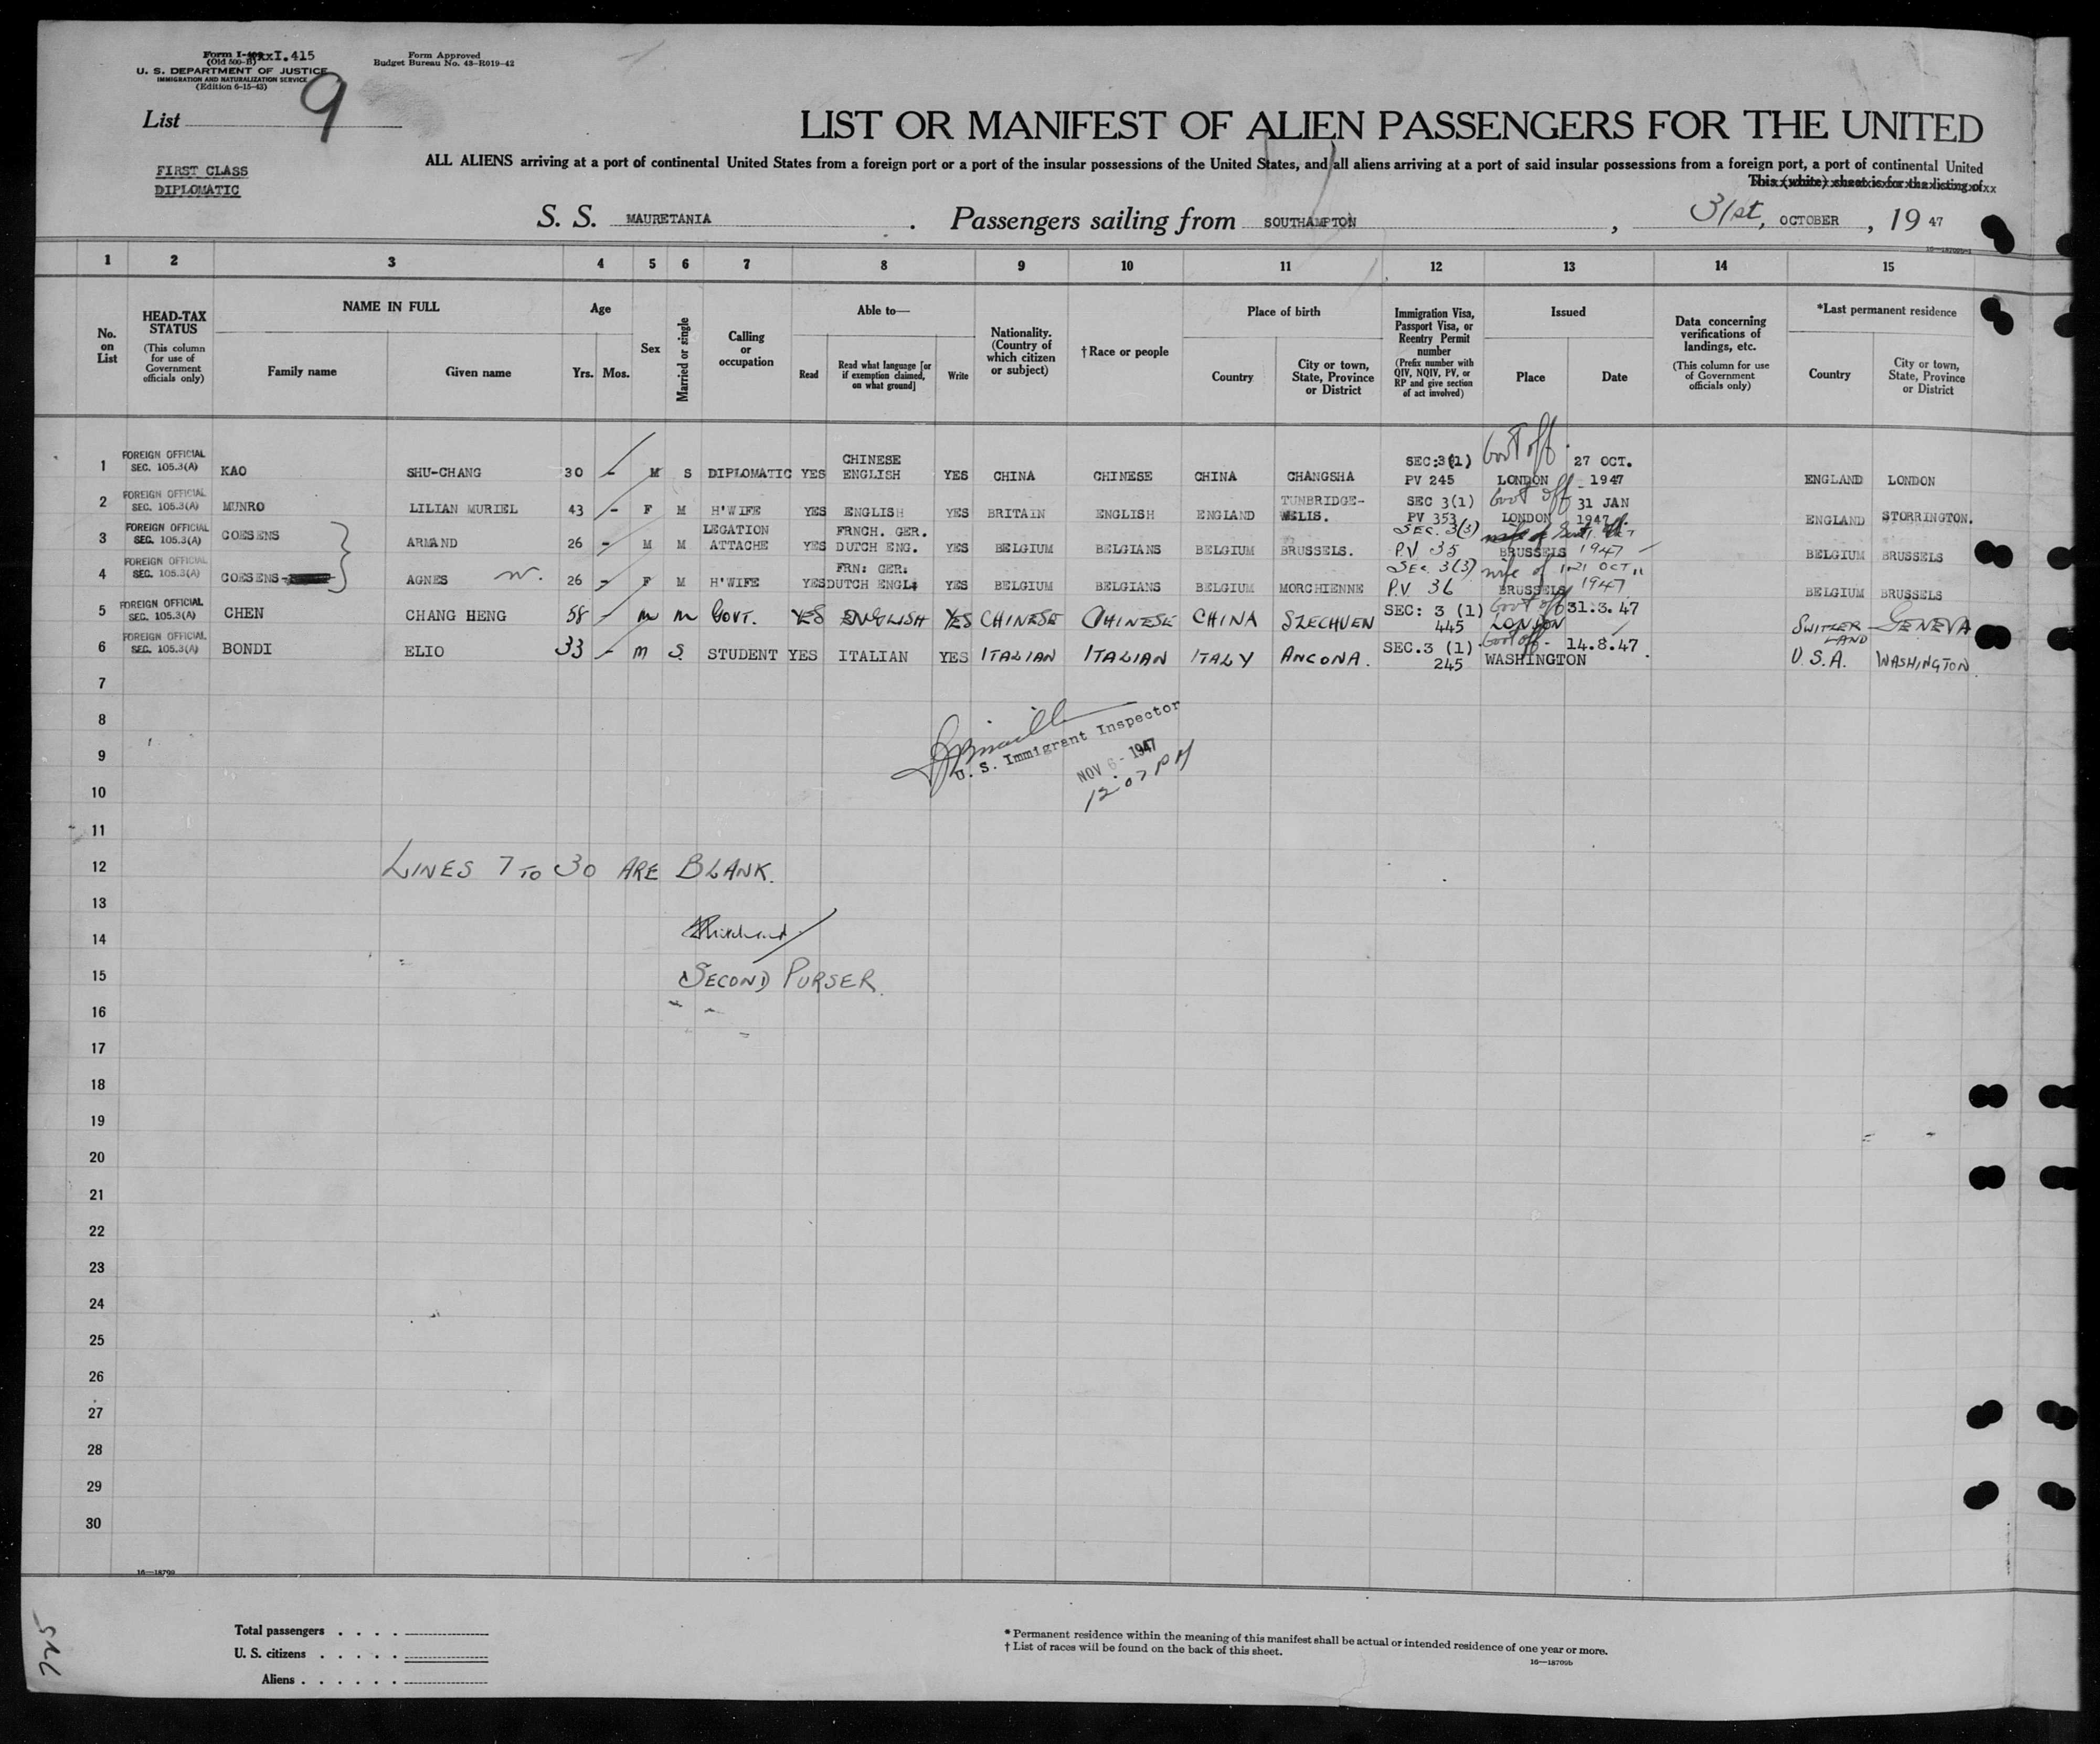 Form I-415
(Old 500-B)
U. S. DEPARTMENT OF JUSTICE
IMMIGRATION AND NATURALIZATION SERVICE
(Edition 6-15-43)
Form Approved
Budget Bureau No. 43-R019-42
List 9
FIRST CLASS
DIPLOMATIC
LIST OR MANIFEST OF ALIEN PASSENGERS FOR THE UNITED
ALL ALIENS arriving at a port of continental United States from a foreign port or a port of the insular possessions of the United States, and all aliens arriving at a port of said insular possessions from a foreign port, a port of continental United
This (white) sheet is for the listing of
S. S. MAURETANIA . Passengers sailing from SOUTHAMPTON , 31st, OCTOBER , 19 47
16—18709b-1
1 2 3 4 5 6 7 8 9 10 11 12 13 14 15
No. on List
HEAD-TAX STATUS
(This column for use of Government officials only)
NAME IN FULL
Family name
Given name
Age
Yrs. Mos.
Sex
Married or single
Calling or occupation
Able to—
Read
Read what language [or if exemption claimed, on what ground]
Write
Nationality. (Country of which citizen or subject)
†Race or people
Place of birth
Country
City or town, State, Province or District
Immigration Visa, Passport Visa, or Reentry Permit number
(Prefix number with QIV, NQIV, PV, or RP and give section of act involved)
Issued
Place
Date
Data concerning verifications of landings, etc.
(This column for use of Government officials only)
*Last permanent residence
Country
City or town, State, Province or District
1 FOREIGN OFFICIAL SEC. 105.3(A) KAO SHU-CHANG 30 - M S DIPLOMATIC YES CHINESE ENGLISH YES CHINA CHINESE CHINA CHANGSHA SEC:3(1) PV 245 Govt off. LONDON 27 OCT. 1947 ENGLAND LONDON
2 FOREIGN OFFICIAL SEC. 105.3(A) MUNRO LILIAN MURIEL 43 - F M H'WIFE YES ENGLISH YES BRITAIN ENGLISH ENGLAND TUNBRIDGE-WELLS. SEC 3(1) PV 353 Govt off LONDON 31 JAN 1947 ENGLAND STORRINGTON.
3 FOREIGN OFFICIAL SEC. 105.3(A) COESENS ARMAND 26 - M M LEGATION ATTACHE YES FRNCH. GER. DUTCH ENG. YES BELGIUM BELGIANS BELGIUM BRUSSELS. SEC. 3(3) P.V 35 BRUSSELS 1947 BELGIUM BRUSSELS
4 FOREIGN OFFICIAL SEC. 105.3(A) COESENS AGNES W. 26 - F M H'WIFE YES FRN: GER: DUTCH ENGL: YES BELGIUM BELGIANS BELGIUM MORCHIENNE SEC. 3(3) P.V 36 wife of BRUSSELS 21 OCT 1947 BELGIUM BRUSSELS
5 FOREIGN OFFICIAL SEC. 105.3(A) CHEN CHANG HENG 58 - M M GOVT. YES ENGLISH YES CHINESE CHINESE CHINA SZECHUEN SEC: 3 (1) 445 Govt off LONDON 31.3.47 SWITZERLAND GENEVA
6 FOREIGN OFFICIAL SEC. 105.3(A) BONDI ELIO 33 - M S. STUDENT YES ITALIAN YES ITALIAN ITALIAN ITALY ANCONA. SEC.3 (1) 245 Govt off - WASHINGTON 14.8.47 U.S.A. WASHINGTON.
7
8
U. S. Immigrant Inspector
9
NOV 6 - 1947
12.07 PM
10
11
12 LINES 7 TO 30 ARE BLANK.
13
14
15 SECOND PURSER.
16
17
18
19
20
21
22
23
24
25
26
27
28
29
30
16—18709
Total passengers . . . .
U. S. citizens . . . . .
Aliens . . . . . .
* Permanent residence within the meaning of this manifest shall be actual or intended residence of one year or more.
† List of races will be found on the back of this sheet.
16—18709b